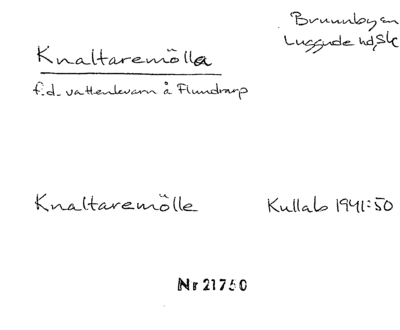 Brunnby sn
Luggude hd, Sk
Knaltaremölla
f.d. vattenkvarn å Flundrarp
Knaltaremölle
Kullab 1941:50
Nr 21750